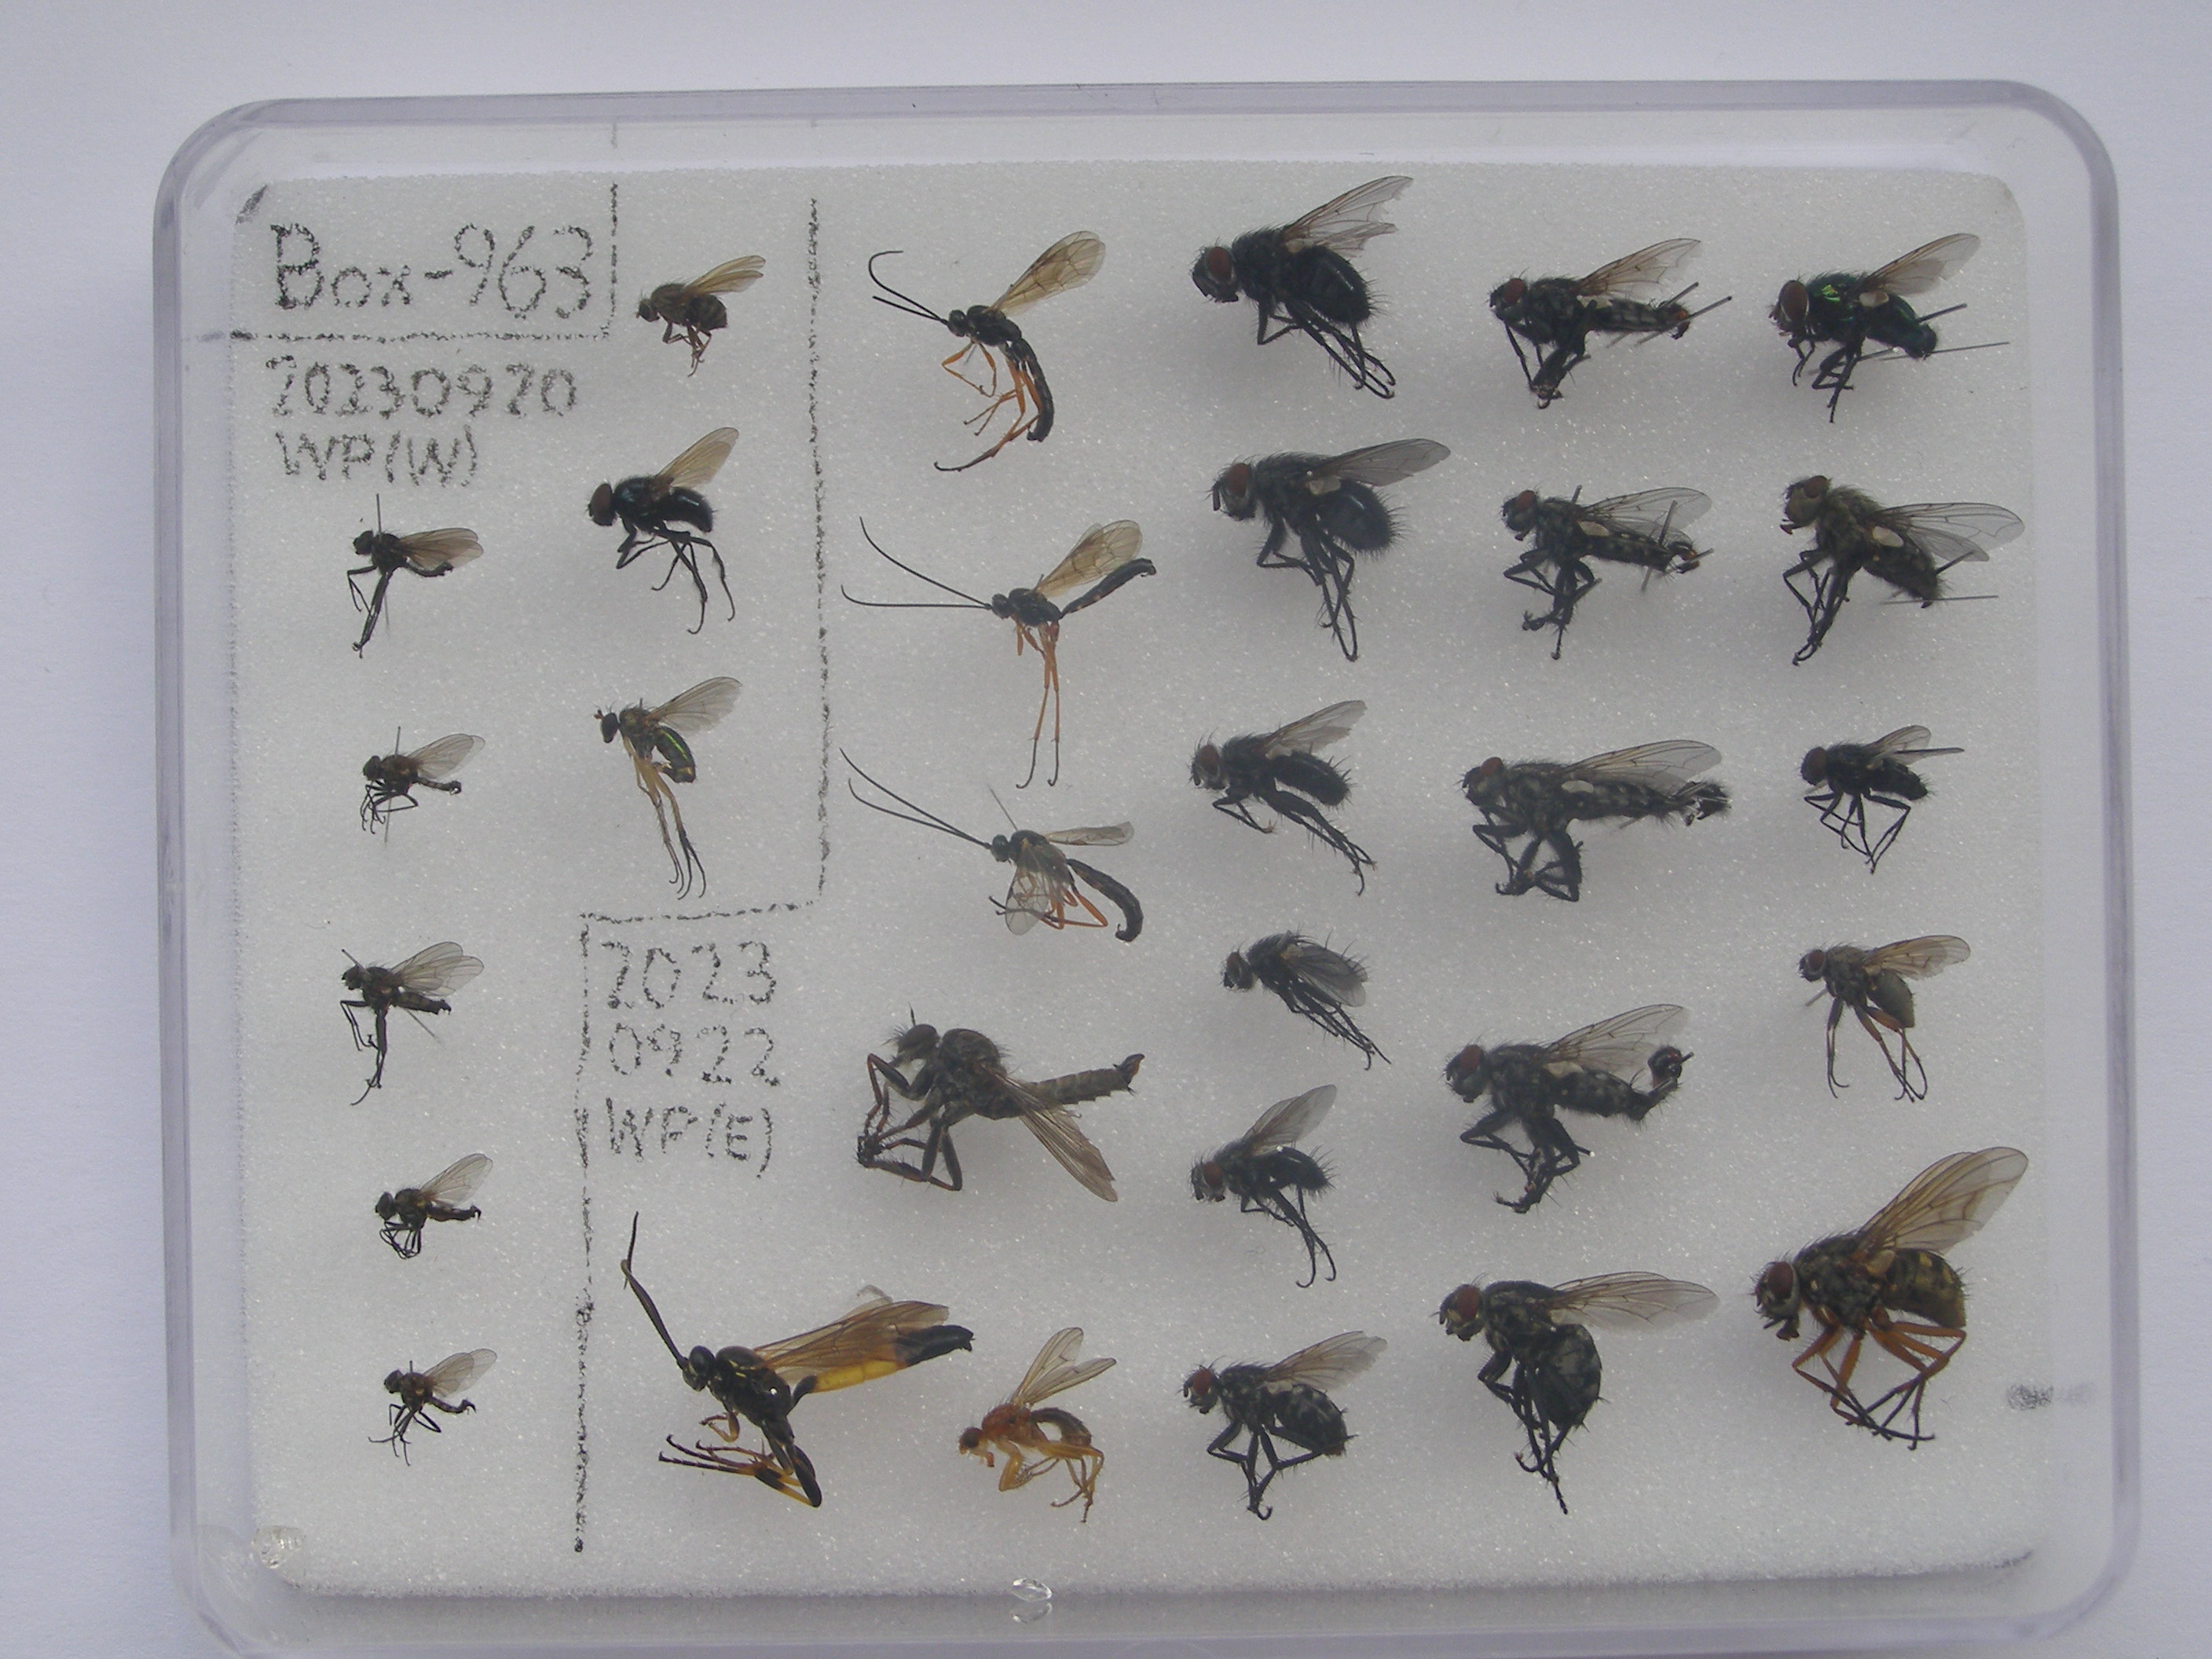 Box-963
20230920
WP(W)
2023
0922
WP(E)